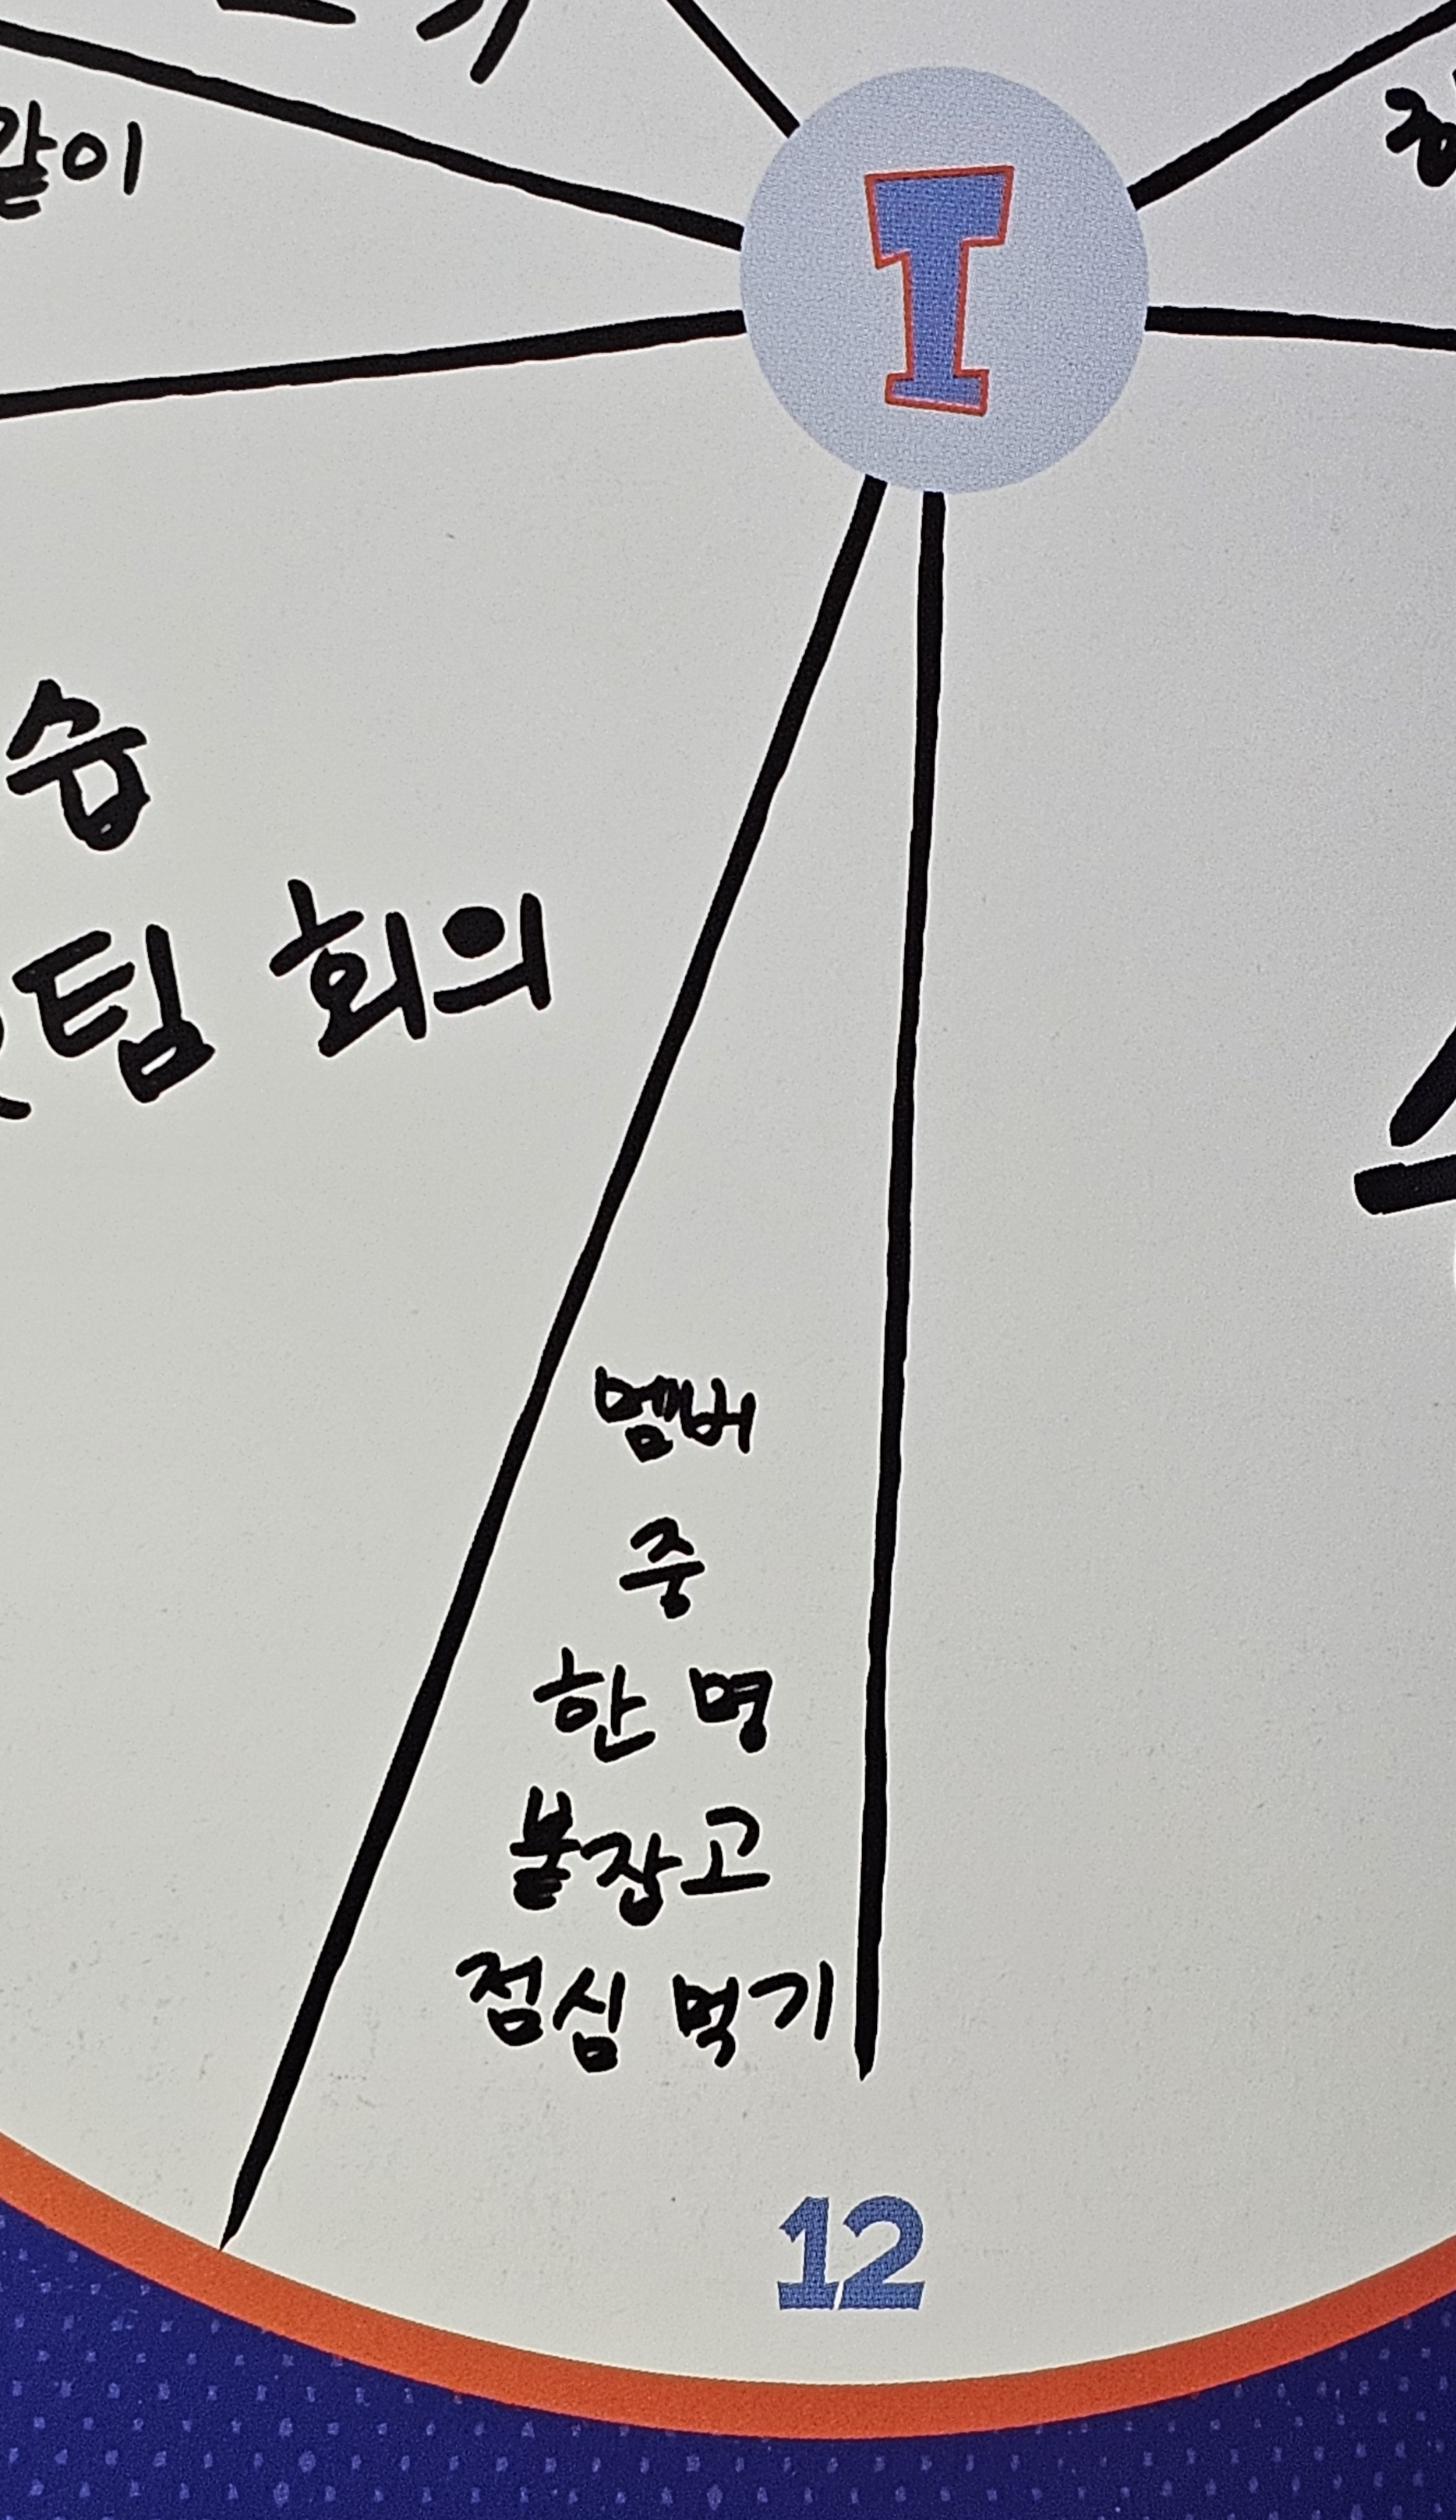 같이
I
습
팀 회의
멤버
중
한 명
붙잡고
점심 먹기
12